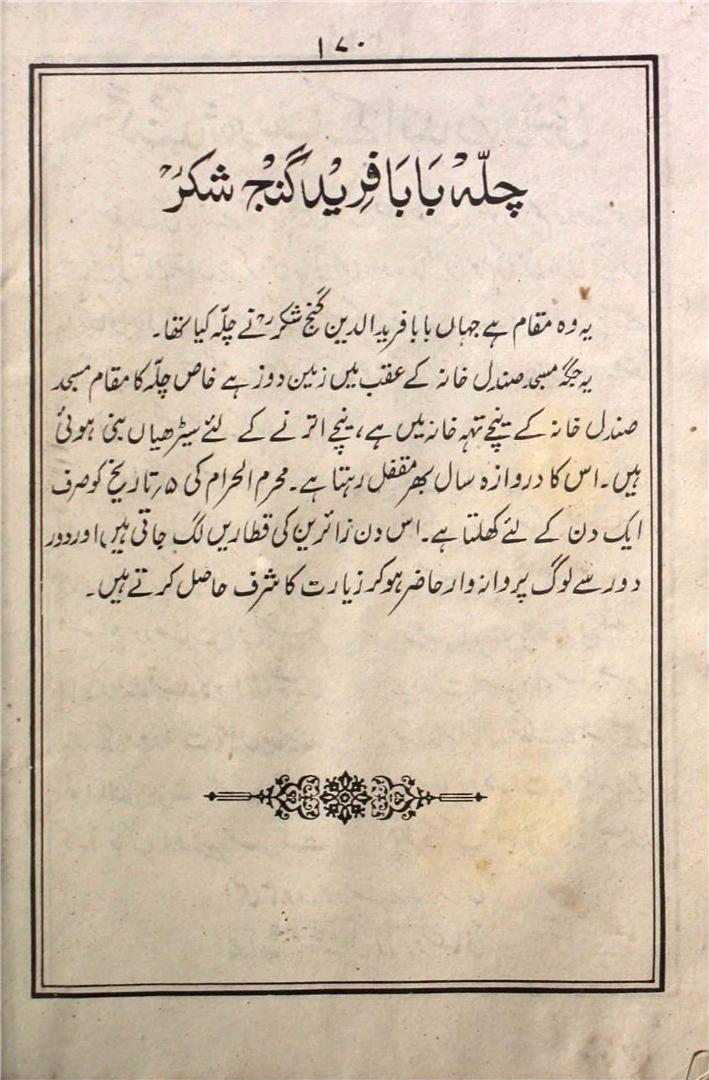 ۱۷۰
چلّہ بَابَا فرِید گنج شکرؒ
یہ وہ مقام ہے جہاں بابا فرید الدین گنج شکرؒ نے چلّہ کیا تھا۔
یہ جگہ مسجد صندل خانہ کے عقب میں زمین دوز ہے خاص چلّہ کا مقام مسجد
صندل خانہ کے نیچے تہہ خانہ میں ہے، نیچے اترنے کے لئے سیڑھیاں بنی ہوئی
ہیں۔ اس کا دروازہ سال بھر مقفل رہتا ہے۔ محرم الحرام کی ۵؍ تاریخ کو صرف
ایک دن کے لئے کھلتا ہے۔ اس دن زائرین کی قطاریں لگ جاتی ہیں اور دور
دور سے لوگ پروانہ وار حاضر ہو کر زیارت کا شرف حاصل کرتے ہیں۔